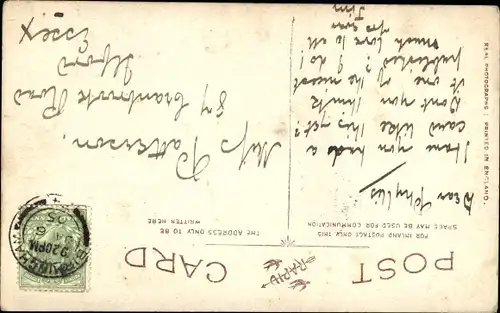 POST CARD
RAPID
FOR INLAND POSTAGE ONLY THIS
SPACE MAY BE USED FOR COMMUNICATION
THE ADDRESS ONLY TO BE
WRITTEN HERE
Dear Phyllis
Have you had a
card like this yet?
Dont you think
it one of the nicest
published? I do!
much love to all
fro your
Jim
Miss Patterson,
84 Cranbrook Road
Ilford
Essex
BIRMINGHAM
9.20PM
REAL PHOTOGRAPHS: PRINTED IN ENGLAND.